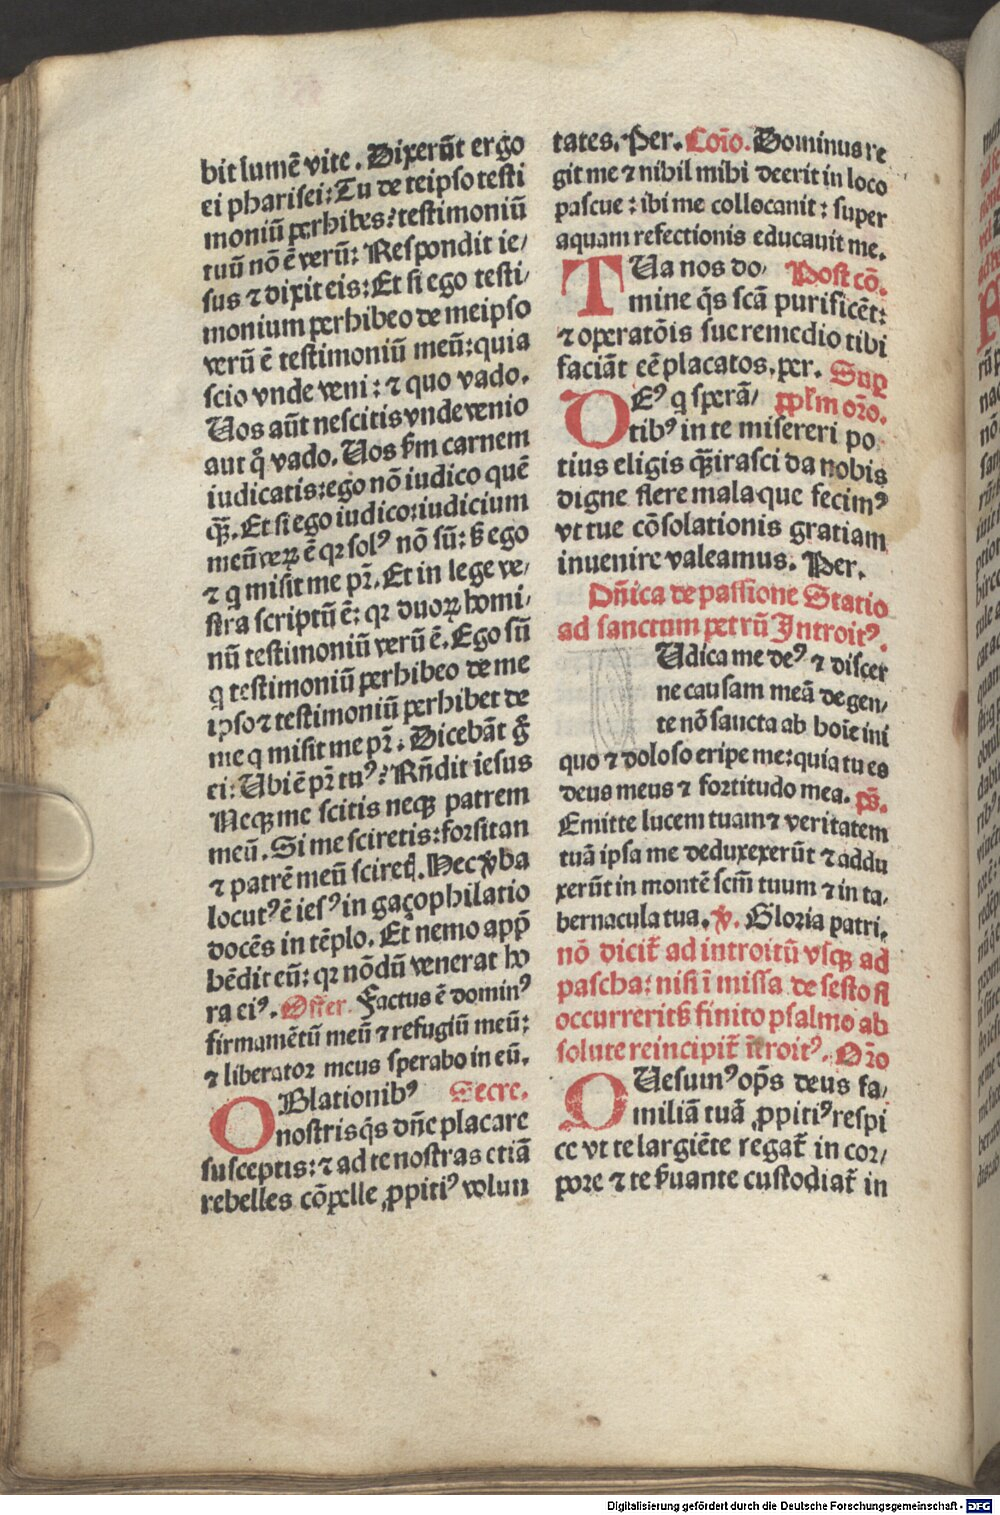 bit lumē vite. Dixerūt ergo
ei pharisei: Tu de teipso testi
moniū perhibes: testimoniū
tuū nō ē verū: Respondit ie/
sus ⁊ dixit eis: Et si ego testi/
monium perhibeo de meipso
verū ē testimoniū meū: quia
scio vnde veni: ⁊ quo vado.
Uos aūt nescitis vnde venio
aut q̊ vado. Uos ẜm carnem
iudicatis: ego nō iudico quē
qꝫ̄. Et si ego iudico: iudicium
meū verꝫ ē qꝛ solꝰ nō sū: ß ego
⁊ q misit me pr̄. Et in lege ve/
stra scriptū ē: qꝛ duoꝝ homi/
nū testimoniū verū ē. Ego sū
q testimoniū perhibeo de me
ipso ⁊ testimoniū perhibet de
me q misit me pr̄. Dicebāt g̊
ei: Ubi ē pr̄ tuꝰ? Rn̄dit iesus
Neqꝫ me scitis neqꝫ patrem
meū. Si me sciretis: forsitan
⁊ patrē meū sciretꝭ. Hec v̓ba
locutꝰ ē iesꝰ in gaçophilatio
docēs in tēplo. Et nemo appͥ
hēdit eū: qꝛ nōdū venerat ho
ra eiꝰ. Offer. Factus ē dominꝰ
firmamētū meū ⁊ refugiū meū:
⁊ liberator meus sperabo in eū.
OBlationibꝰ Secre.
nostris q̄s dn̄e placare
susceptis: ⁊ ad te nostras etiā
rebelles cōpelle ꝓpitiꝰ volun
tates. Per. Cōio. Dominus re
git me ⁊ nihil mihi deerit in loco
pascue: ibi me collocauit: super
aquam refectionis educauit me.
TUa nos do/ Post cō.
mine q̄s scā purificēt:
⁊ operatōis sue remedio tibi
faciāt eē placatos. per. Suꝑ
DEꝰ q sperā/ ppl̄m or̄o.
tibꝰ in te misereri po
tius eligis qꝫ̄ irasci da nobis
digne flere mala que fecimꝰ
vt tue cōsolationis gratiam
inuenire valeamus. Per.
Dn̄ica de passione Statio
ad sanctum petrū Introitꝰ.
Udica me deꝰ ⁊ discer
ne causam meā de gen/
te nō sancta ab hoīe ini
quo ⁊ doloso eripe me: quia tu es
deus meus ⁊ fortitudo mea. ps̄.
Emitte lucem tuam ⁊ veritatem
tuā ipsa me deduxexerūt ⁊ addu
xerūt in montē scm̄ tuum ⁊ in ta/
bernacula tua. v̓. Gloria patri.
nō dicit̄ ad introitū vsqꝫ ad
pascha: nisi ī missa de festo si
occurrerit ß finito psalmo ab
solute reincipit̄ ītroitꝰ. Or̄o
QUesumꝰ op̄s deus fa/
miliā tuā ꝓpitiꝰ respi
ce vt te largiēte regat̄ in cor/
pore ⁊ te ẜuante custodiat̄ in
Digitalisierung gefördert durch die Deutsche Forschungsgemeinschaft - DFG